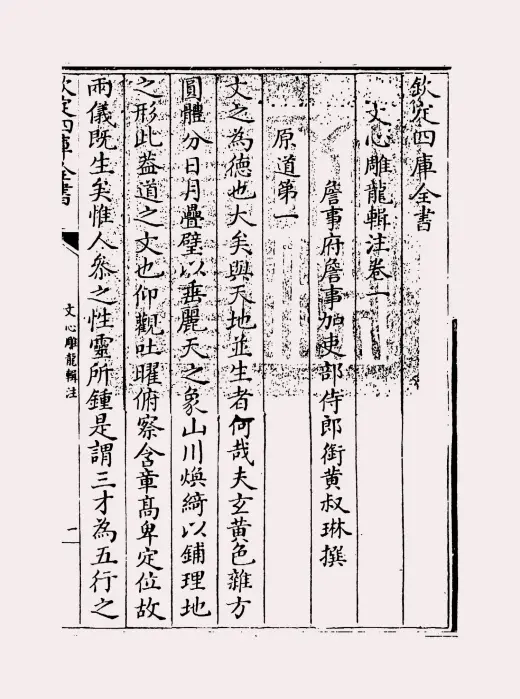 欽定四庫全書
文心雕龍輯注卷一
詹事府詹事加吏部侍郎銜黃叔琳撰
原道第一
文之為德也大矣與天地並生者何哉夫玄黃色雜方
圓體分日月疊璧以垂麗天之象山川煥綺以鋪理地
之形此葢道之文也仰觀吐曜俯察含章髙卑定位故
兩儀既生矣惟人叅之性靈所鍾是謂三才為五行之
欽定四庫全書
文心雕龍輯注
一